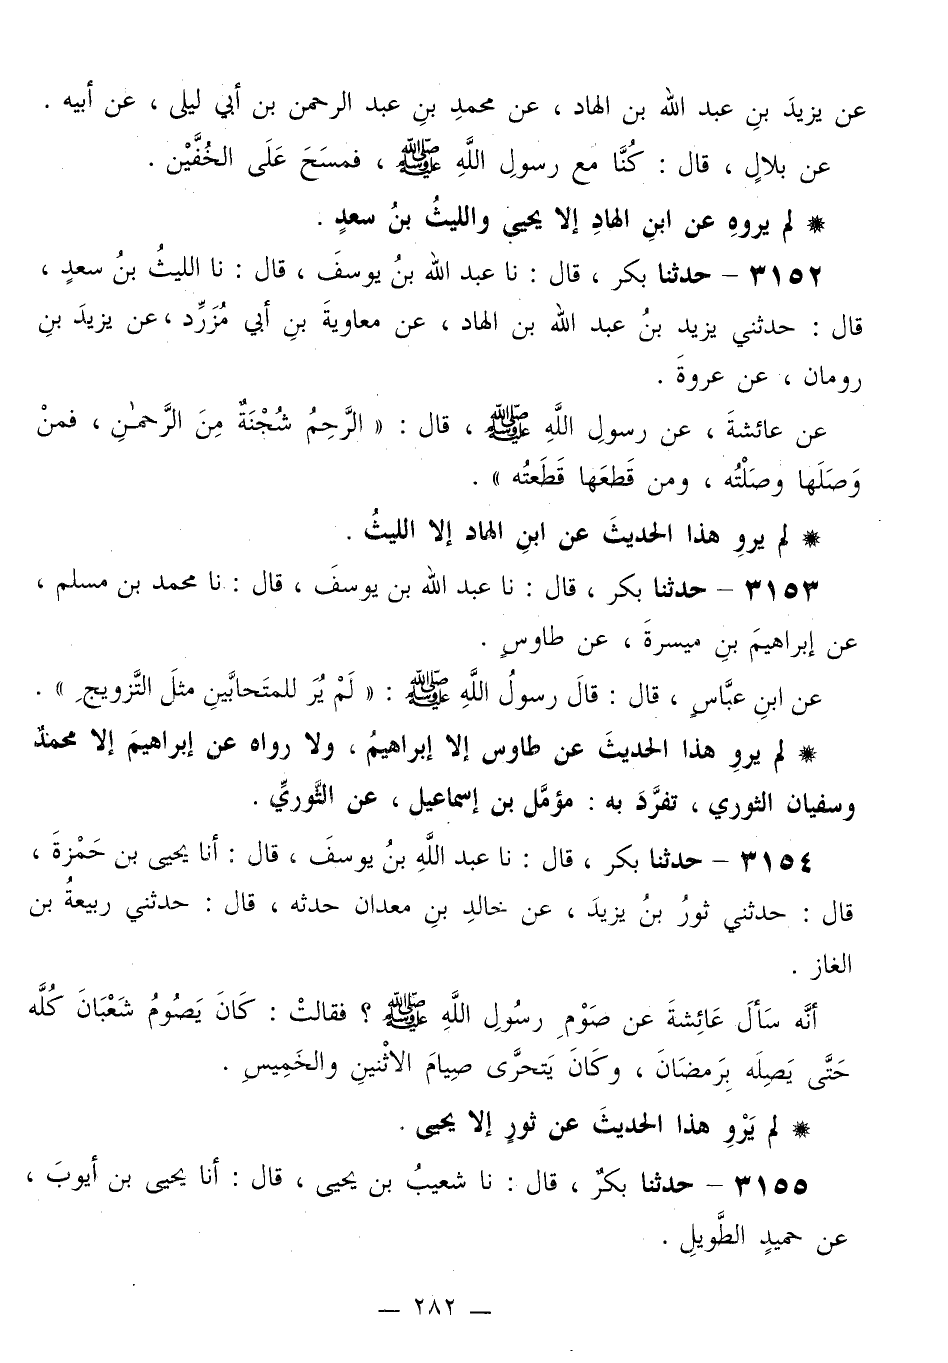 عن يزيدَ بنِ عبد الله بن الهاد ، عن محمدِ بنِ عبد الرحمن بن أبي ليلى ، عن أبيه .
عن بلالٍ ، قال : كُنَّا مع رسولِ اللَّهِ ﷺ ، فمسَحَ عَلَى الخُفَّيْن .
* لم يروهِ عن ابنِ الهادِ إلا يحيى والليثُ بنُ سعدٍ .
٣١٥٢ – حدثنا بكر ، قال : نا عبد الله بنُ يوسفَ ، قال : نا الليثُ بنُ سعدٍ ،
قال : حدثني يزيد بنُ عبد الله بن الهاد ، عن معاويةَ بنِ أبي مُزَرِّد ، عن يزيدَ بنِ
رومان ، عن عروةَ .
عن عائشةَ ، عن رسولِ اللَّهِ ﷺ ، قال : « الرَّحِمُ شُجْنَةٌ مِنَ الرَّحمٰنِ ، فمنْ
وَصَلَها وصَلْتُه ، ومن قَطعَها قَطَعتُه » .
* لم يروِ هذا الحديثَ عن ابنِ الهاد إلا الليثُ .
٣١٥٣ – حدثنا بكر ، قال : نا عبد الله بن يوسفَ ، قال : نا محمد بن مسلم ،
عن إبراهيمَ بنِ ميسرةَ ، عن طاوسٍ .
عن ابنِ عبَّاسٍ ، قال : قالَ رسولُ اللَّهِ ﷺ : « لَمْ يُرَ للمتَحابَّينِ مثلَ التَّزويجِ » .
* لم يروِ هذا الحديثَ عن طاوس إلا إبراهيمُ ، ولا رواه عن إبراهيمَ إلا محمدٌ
وسفيان الثوري ، تفرَّدَ به : مؤمَّل بن إسماعيل ، عن الثَّوريِّ .
٣١٥٤ – حدثنا بكر ، قال : نا عبد اللَّهِ بنُ يوسفَ ، قال : أنا يحيى بن حَمْزةَ ،
قال : حدثني ثورُ بنُ يزيدَ ، عن خالدِ بنِ معدان حدثه ، قال : حدثني ربيعةُ بن
الغاز .
أنَّه سَألَ عَائِشةَ عن صَوْمِ رسُولِ اللَّهِ ﷺ ؟ فقالتْ : كَانَ يَصُومُ شَعْبَانَ كُلَّه
حَتَّى يَصِلَه بِرَمضَانَ ، وكَانَ يَتحرَّى صِيامَ الاثْنينِ والخَمِيسِ .
* لم يَرْوِ هذا الحديثَ عن ثورٍ إلا يحيى .
٣١٥٥ – حدثنا بكرٌ ، قال : نا شعيبُ بن يحيى ، قال : أنا يحيى بن أيوبَ ،
عن حميدٍ الطَّويلِ .
– ٢٨٢ –